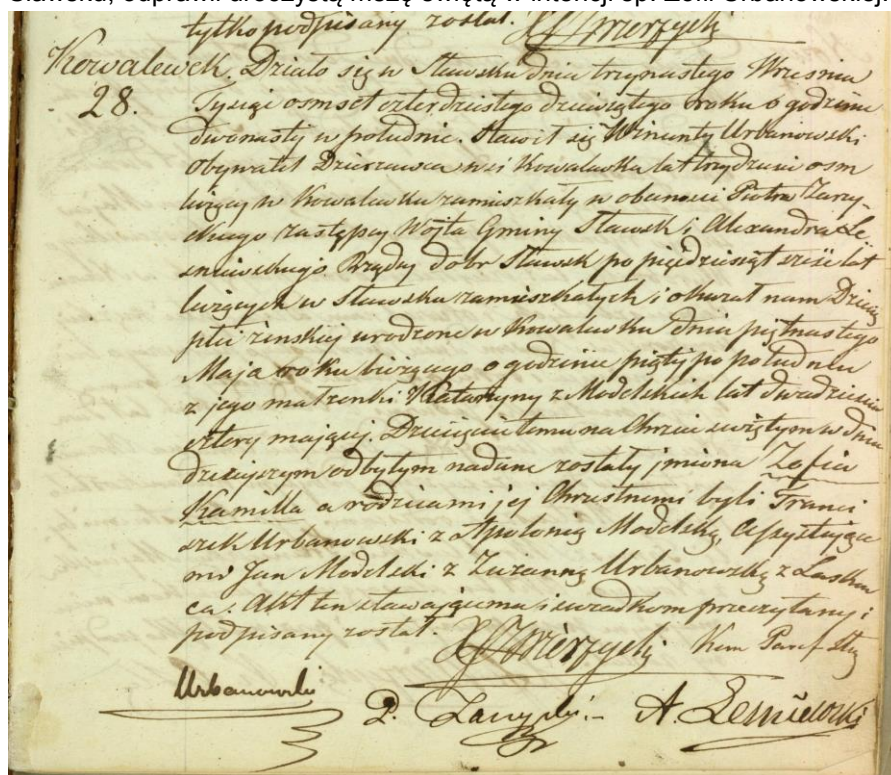 Sławenia, odprawił uroczystą mszę świętą w intencji śp. Zofii Urbanowskiej.
tylko podpisany został. X Zwierzycki
Kowalewek. Działo się w Sławsku dnia trzynastego Wrzesnia
28. Tysiąc osmset czterdziestego dziewiątego roku o godzinie
dwonastej w południe. Stawił się Wincenty Urbanowski
Obywatel Dzierzawca wsi Kowalewka lat trzydzieści osm
liczący w Kowalewku zamieszkały w obecności Piotra Zarzy-
ckiego zastępcy Wójta Gminy Sławsk i Alexandra Le
sniewskiego Rządcy dobr Sławsk po pięćdziesiąt sześć lat
liczących w Sławsku zamieszkałych i okazał nam Dziecię
płci żenskiej urodzone w Kowalewku dnia piętnastego
Maja roku bieżącego o godzinie piątej po południu
z jego małżenki Katarzyny z Modelskich lat dwadzieścia
cztery mającej. Dziecięciu temu na Chrzcie świętym w dniu
dzisiejszym odbytym nadane zostały jmiona Zofia
Kamilla a rodzicami jej Chrzestnemi byli Franci
szek Urbanowski z Apolonią Modelską, Assystujące
mi Jan Modelski z Zuzanną Urbanowską z
ca. Akt ten stawającemu i swiadkom przeczytany i
podpisany został. X Zwierzycki Kom Paraf
Urbanowski
P. Zarzycki A. Lesniewski